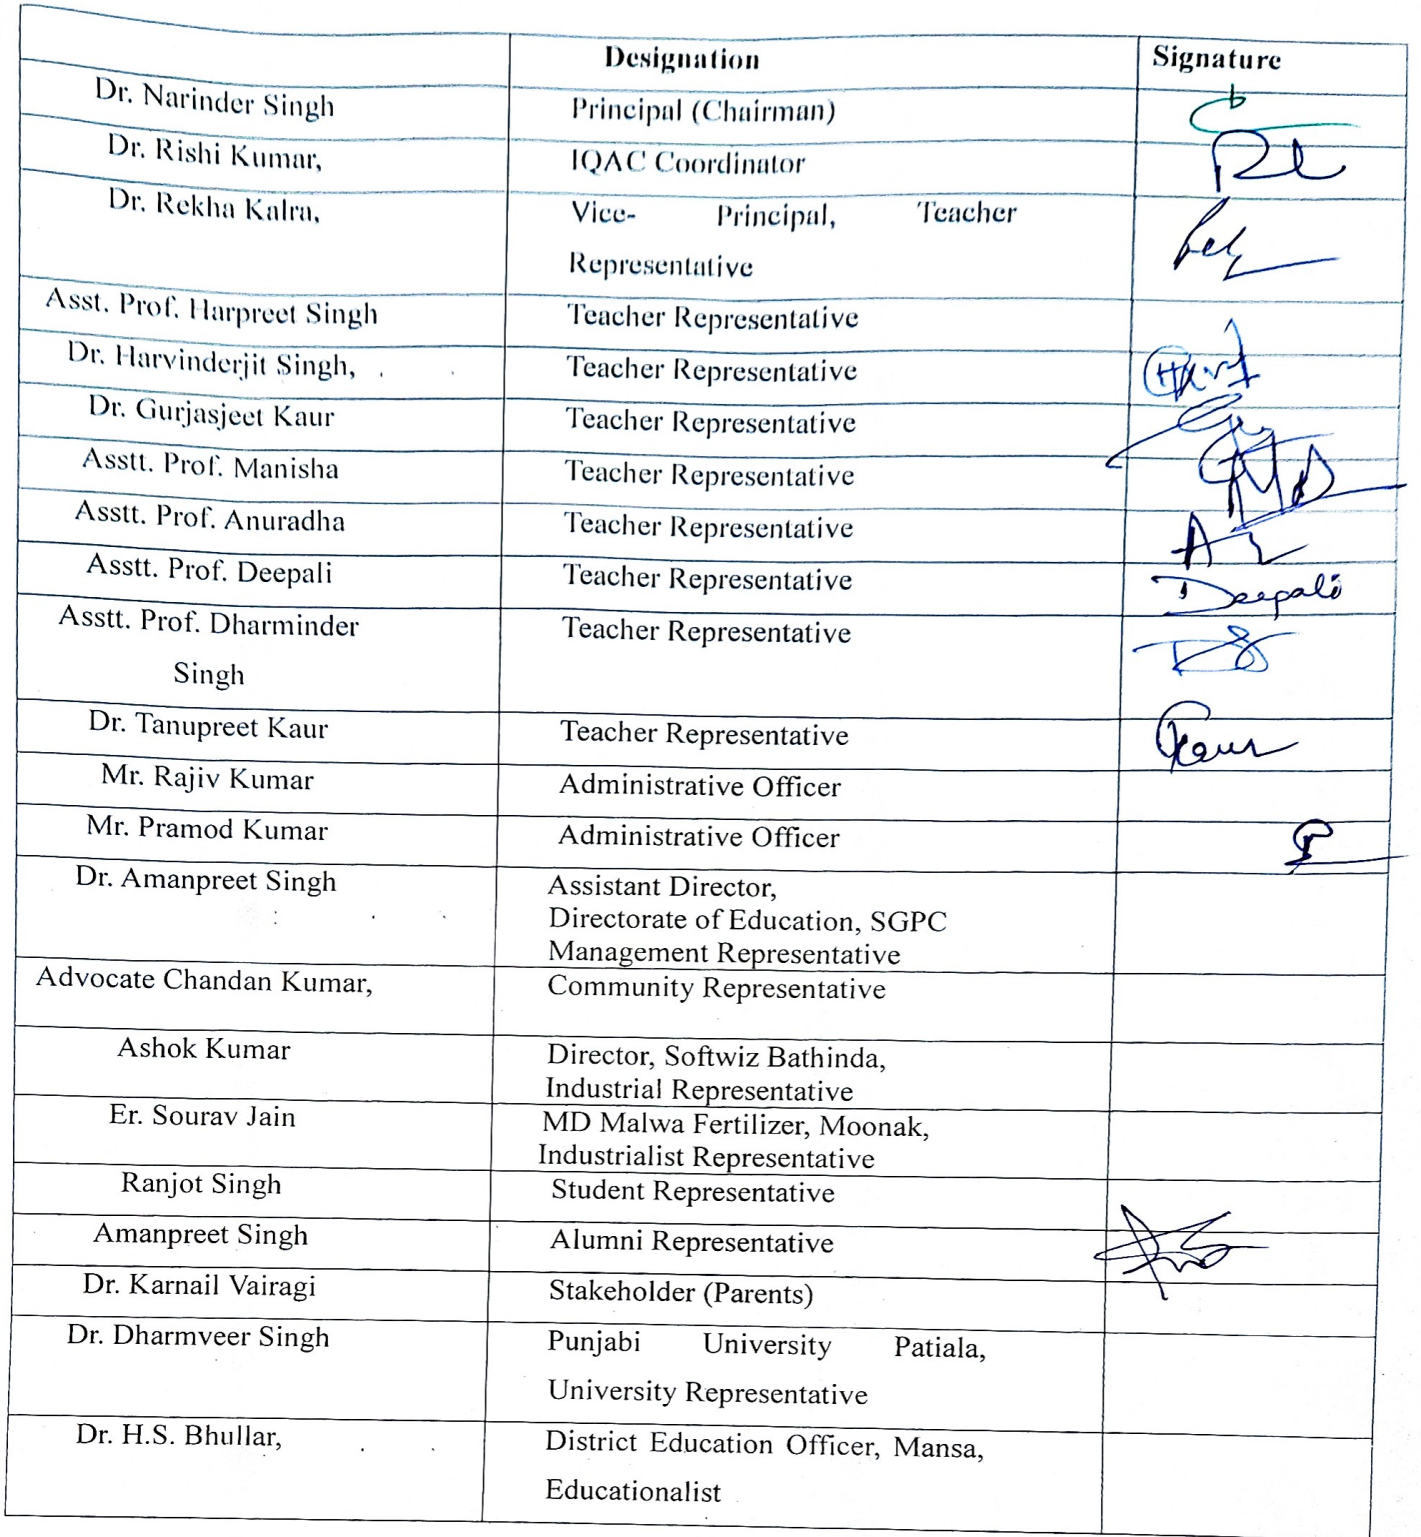 Designation Signature
Dr. Narinder Singh Principal (Chairman)
Dr. Rishi Kumar, IQAC Coordinator
Dr. Rekha Kalra, Vice- Principal, Teacher
Representative
Asst. Prof. Harpreet Singh Teacher Representative
Dr. Harvinderjit Singh, Teacher Representative
Dr. Gurjasjeet Kaur Teacher Representative
Asstt. Prof. Manisha Teacher Representative
Asstt. Prof. Anuradha Teacher Representative
Asstt. Prof. Deepali Teacher Representative Deepali
Asstt. Prof. Dharminder Teacher Representative
Singh
Dr. Tanupreet Kaur Teacher Representative
Mr. Rajiv Kumar Administrative Officer
Mr. Pramod Kumar Administrative Officer
Dr. Amanpreet Singh Assistant Director,
Directorate of Education, SGPC
Management Representative
Advocate Chandan Kumar, Community Representative
Ashok Kumar Director, Softwiz Bathinda,
Industrial Representative
Er. Sourav Jain MD Malwa Fertilizer, Moonak,
Industrialist Representative
Ranjot Singh Student Representative
Amanpreet Singh Alumni Representative
Dr. Karnail Vairagi Stakeholder (Parents)
Dr. Dharmveer Singh Punjabi University Patiala,
University Representative
Dr. H.S. Bhullar, District Education Officer, Mansa,
Educationalist